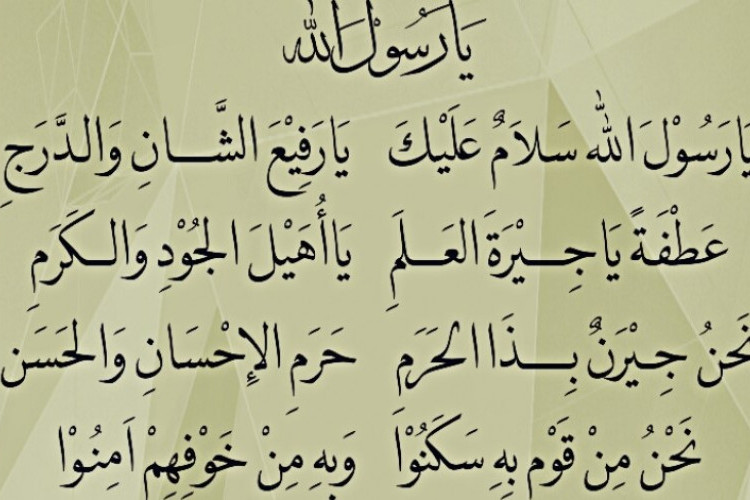 يَارَسُوْلَ اللّٰه
يَارَسُوْلَ اللّٰه سَلاَمٌ عَلَيْكَ يَارَفِيْعَ الشَّـــانِ وَالدَّرَجِ
عَطْفَةً يَا جِـــيْرَةَ العَـلَمِ يَاأُهَيْلَ الجُوْدِ وَالـكَرَمِ
نَحنُ جِـيْرَنٌ بِـــذَا الحَرَمِ حَرَمِ الإِحْسَانِ وَالحَسَنِ
نَحْنُ مِنْ قَوْمٍ بِهِ سَكَنُوْا وَبِهِ مِنْ خَوْفِهِمْ اَمِنُوْا